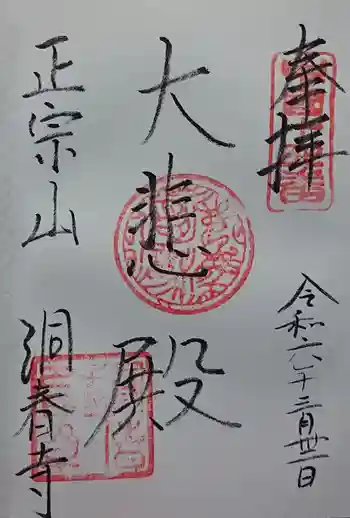 奉拝
令和六年三月卅一日
大悲殿
正宗山
洞春寺